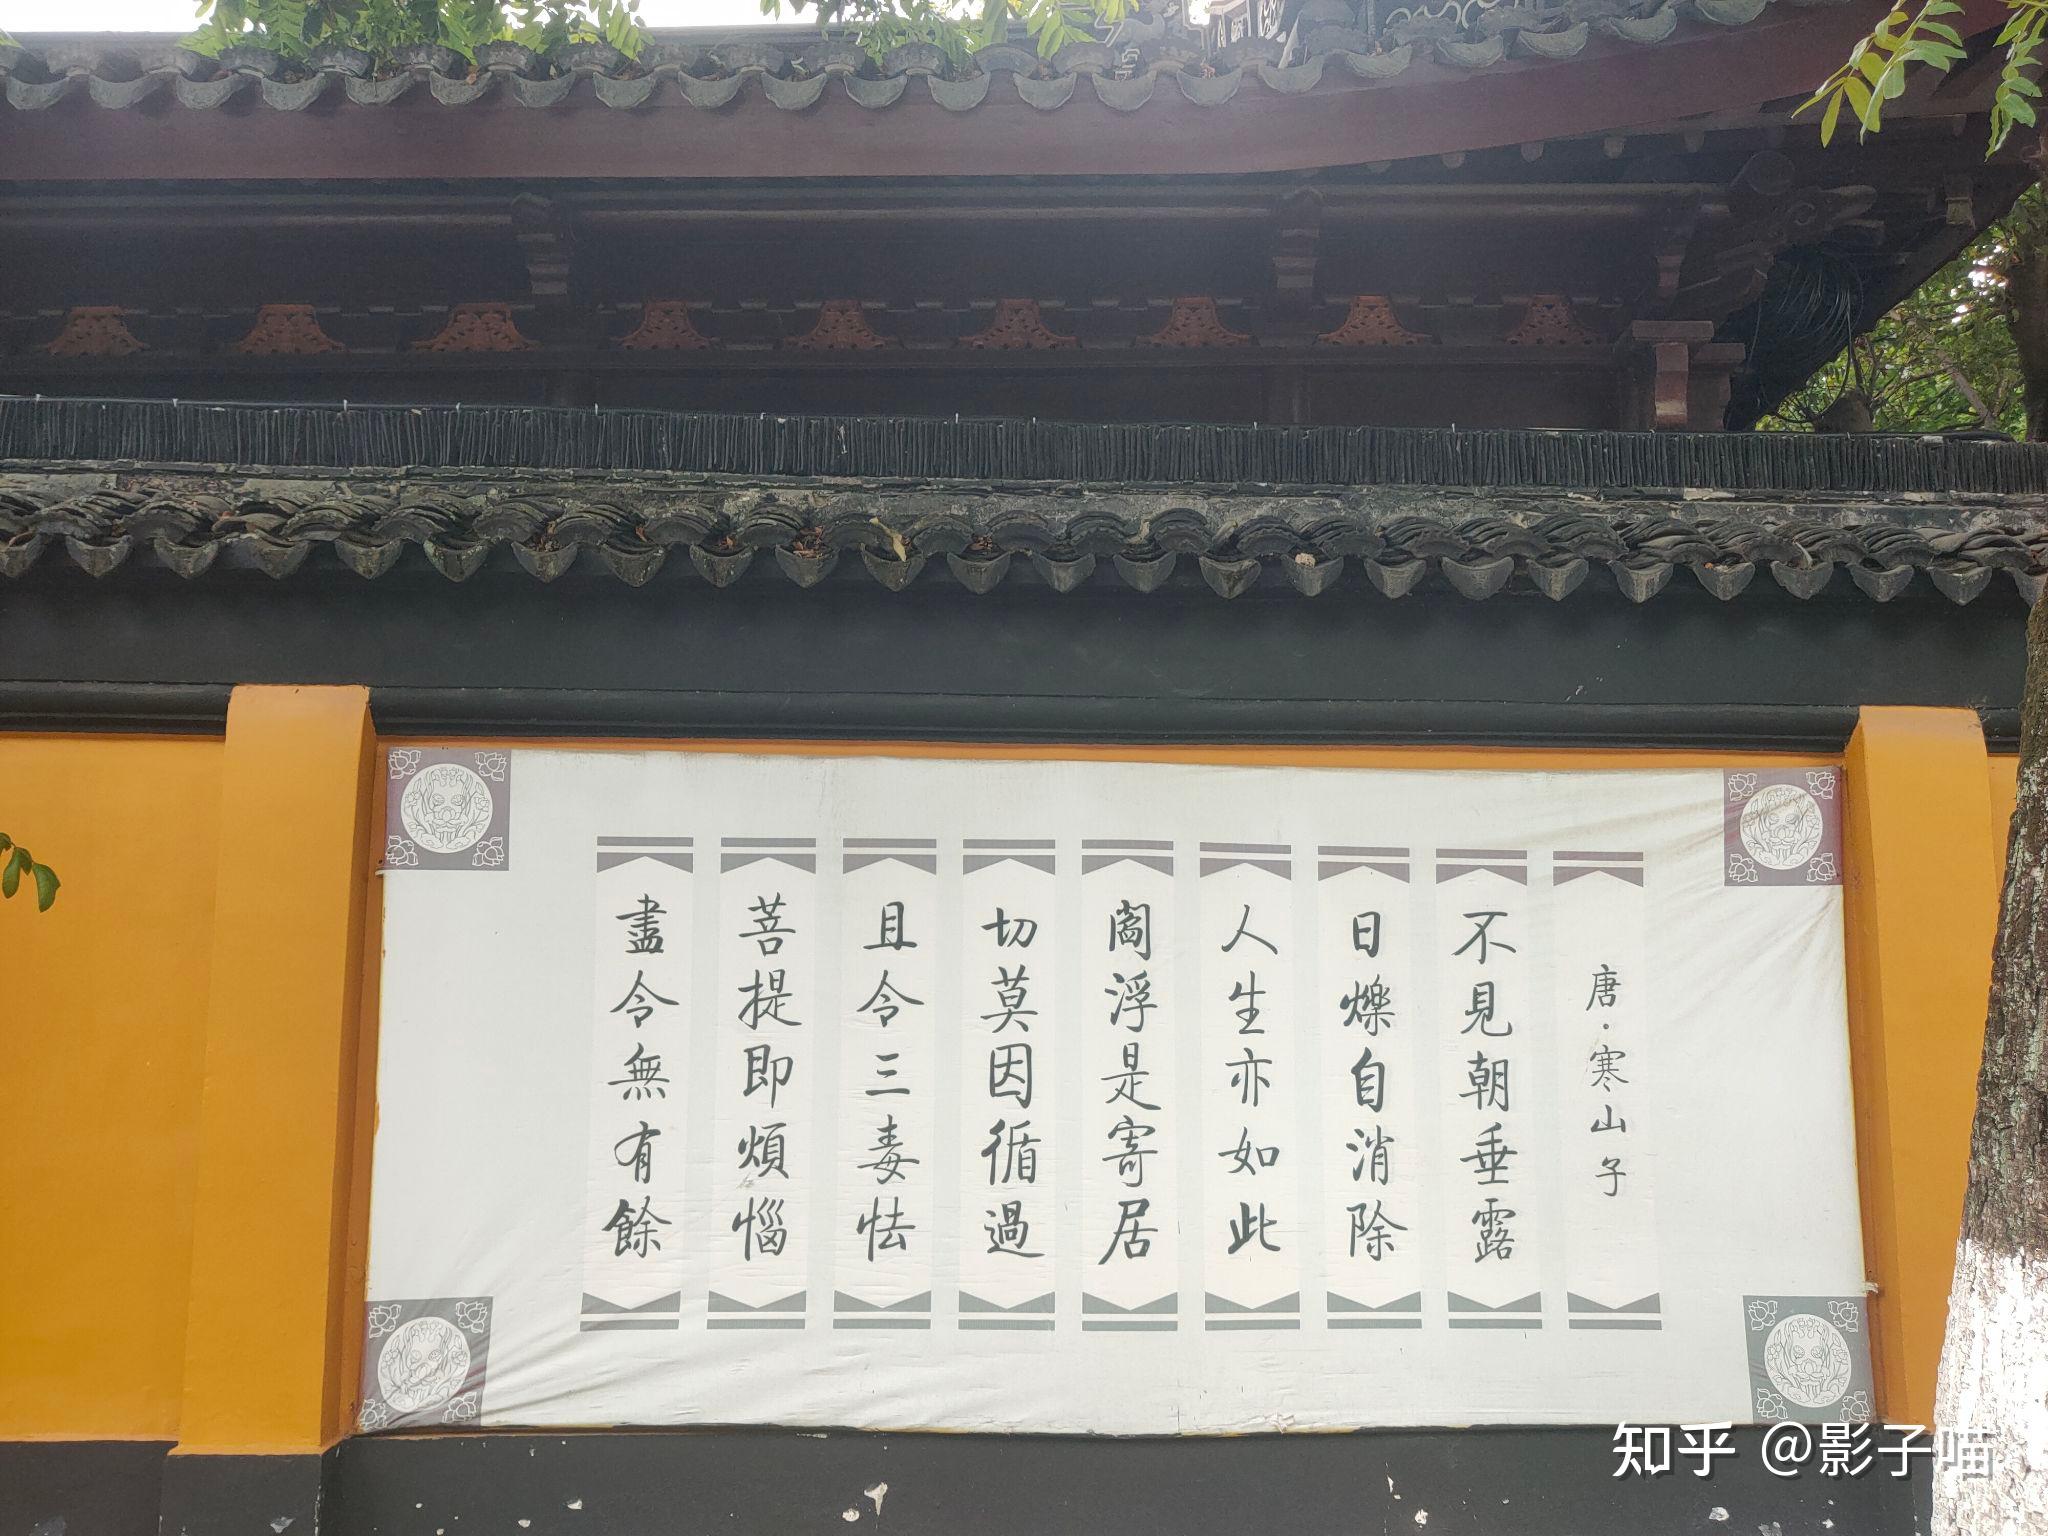 唐·寒山子
不見朝垂露
日爍自消除
人生亦如此
閻浮是寄居
切莫因循過
且令三毒怯
菩提即煩惱
盡令無有餘
知乎 @影子喵